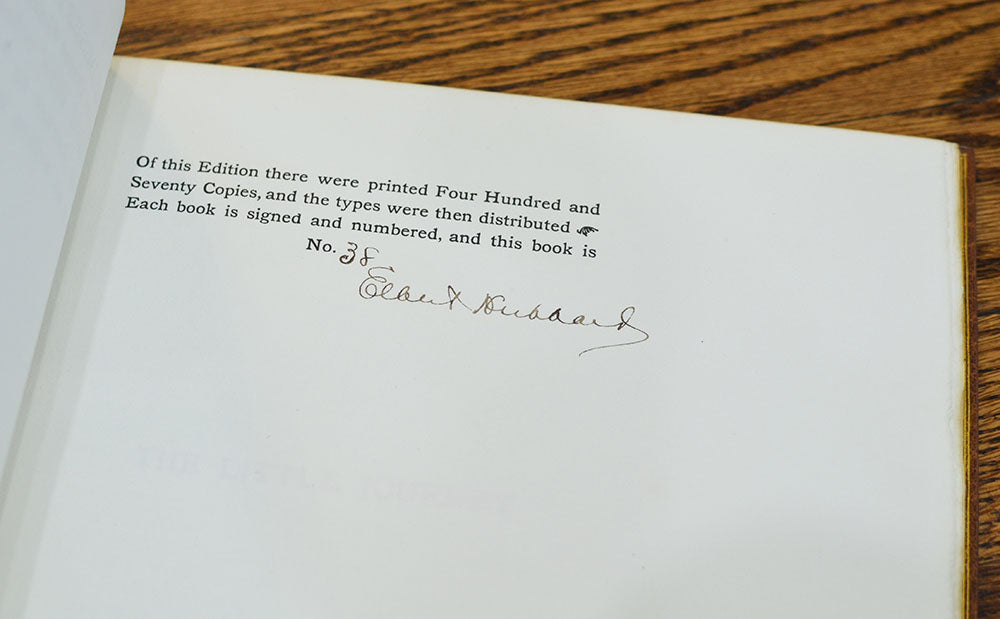 Of this Edition there were printed Four Hundred and
Seventy Copies, and the types were then distributed
Each book is signed and numbered, and this book is
No. 38
Elbert Hubbard